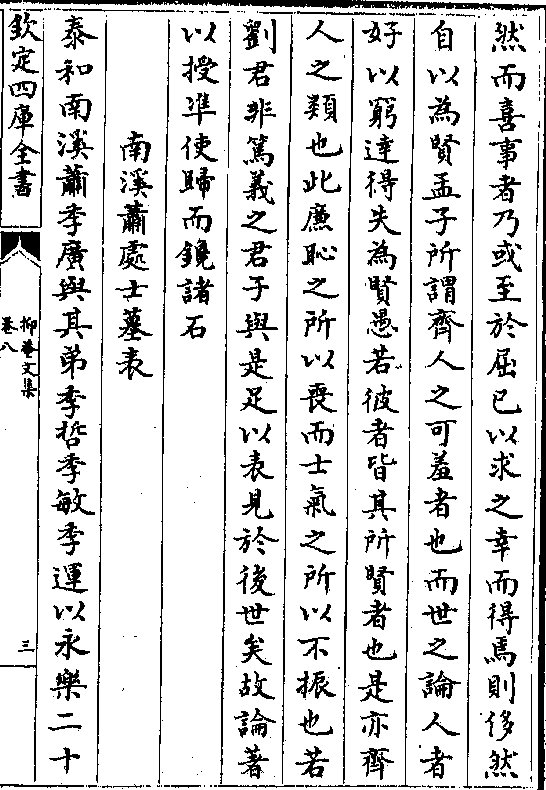 然而喜事者乃或至於屈已以求之幸而得焉則侈然
自以為賢孟子所謂齊人之可羞者也而世之論人者
好以窮達得失為賢愚若彼者皆其所賢者也是亦齊
人之類也此廉恥之所以喪而士氣之所以不振也若
劉君非篤義之君子與是足以表見於後世矣故論著
以授準使歸而鑱諸石
南溪蕭處士墓表
泰和南溪蕭季廣與其弟季哲季敏季運以永樂二十
欽定四庫全書
抑菴文集
卷八
三